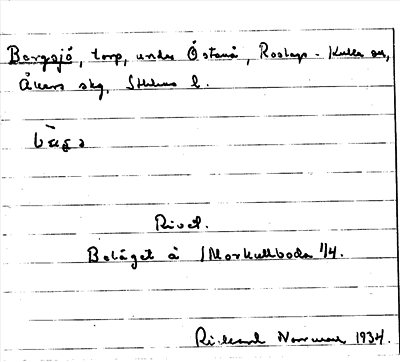 Borgsjö, torp, under Östanå, Roslags-Kulla sn,
Åkers skg, Sthlms l.
Rivet.
Beläget å Morkullboda 1/4.
Rickard Norrman 1934.